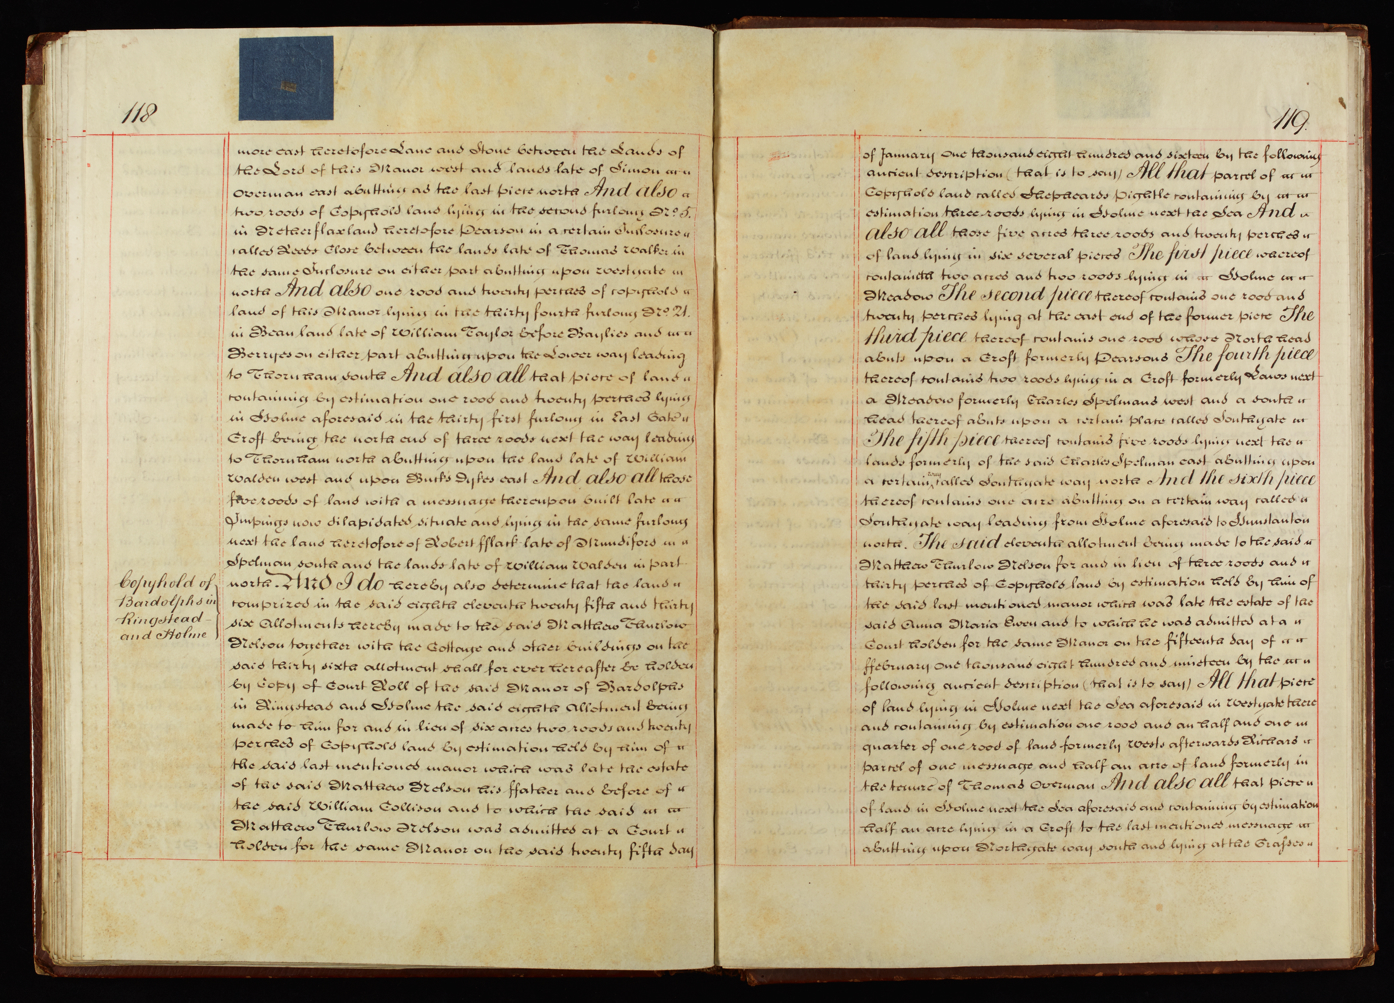 118
more east heretofore Lane and Stone between the Lands of
the Lord of this Manor west and lands late of Simon
Overman east abutting as the last piece north And also
two roods of Copyhold land lying in the second furlong No. 5.
in Netherflaxland heretofore Pearson in a certain Inclosure
called Reeds Close between the lands late of Thomas Walker in
the same Inclosure on either part abutting upon Westgate
north And also one rood and twenty perches of copyhold
land of this Manor lying in the thirty fourth furlong No. 21.
in Bean land late of William Taylor before Baylies and
Berryes on either part abutting upon the Lower way leading
to Thornham south And also all that piece of land
containing by estimation one rood and twenty perches lying
in Holme aforesaid in the thirty first furlong in East Gate
Croft being the north end of three roods next the way leading
to Thornham north abutting upon the land late of William
Walden west and upon Bucks Dykes east And also all those
five roods of land with a messuage thereupon built late
Impings now dilapidated situate and lying in the same furlong
next the land heretofore of Robert fflack late of Mundiford
Spelman south and the lands late of William Walden in part
Copyhold of
Bardolphs in
Ringstead
and Holme
north. And I do hereby also determine that the land
comprized in the said eighth eleventh twenty fifth and thirty
six Allotments hereby made to the said Matthew Thurlow
Nelson together with the Cottage and other buildings on the
said thirty sixth allotment shall for ever hereafter be holden
by Copy of Court Roll of the said Manor of Bardolphs
in Ringstead and Holme the said eighth Allotment being
made to him for and in lieu of six acres two roods and twenty
perches of Copyhold land by estimation held by him of
the said last mentioned manor which was late the estate
of the said Matthew Nelson his ffather and before of
the said William Collison and to which the said
Matthew Thurlow Nelson was admitted at a Court
holden for the same Manor on the said twenty fifth day
119.
of January One thousand eight hundred and sixteen by the following
ancient description (that is to say) All that parcel of
Copyhold land called Shepheards Pightle containing by
estimation three roods lying in Holme next the Sea And
also all those five acres three roods and twenty perches
of land lying in six several pieces The first piece whereof
containeth two acres and two roods lying in Holme
Meadow The second piece thereof contains one rood and
twenty perches lying at the east end of the former piece The
third piece thereof contains one rood whose North head
abuts upon a Croft formerly Pearsons The fourth piece
thereof contains two roods lying in a Croft formerly Laws next
a Meadow formerly Charles Spelmans west and a south
head thereof abuts upon a certain place called Southgate
The fifth piece thereof contains five roods lying next the
lands formerly of the said Charles Spelman east abutting upon
a certain way called Southgate way north And the sixth piece
thereof contains one acre abutting on a certain way called
Southgate way leading from Holme aforesaid to Hunstanton
north. The said eleventh allotment being made to the said
Matthew Thurlow Nelson for and in lieu of three roods and
thirty perches of Copyhold land by estimation held by him of
the said last mentioned manor which was late the estate of the
said Anna Maria Ewen and to which he was admitted at a
Court holden for the same Manor on the fifteenth day of
ffebruary One thousand eight hundred and nineteen by the
following ancient description (that is to say) All that piece
of land lying in Holme next the Sea aforesaid in Westgate there
and containing by estimation one rood and an half and one
quarter of one rood of land formerly Wests afterwards Richars
parcel of one messuage and half an acre of land formerly in
the tenure of Thomas Overman And also all that piece
of land in Holme next the Sea aforesaid and containing by estimation
half an acre lying in a Croft to the last mentioned messuage
abutting upon Northgate way south and lying at the Grasses